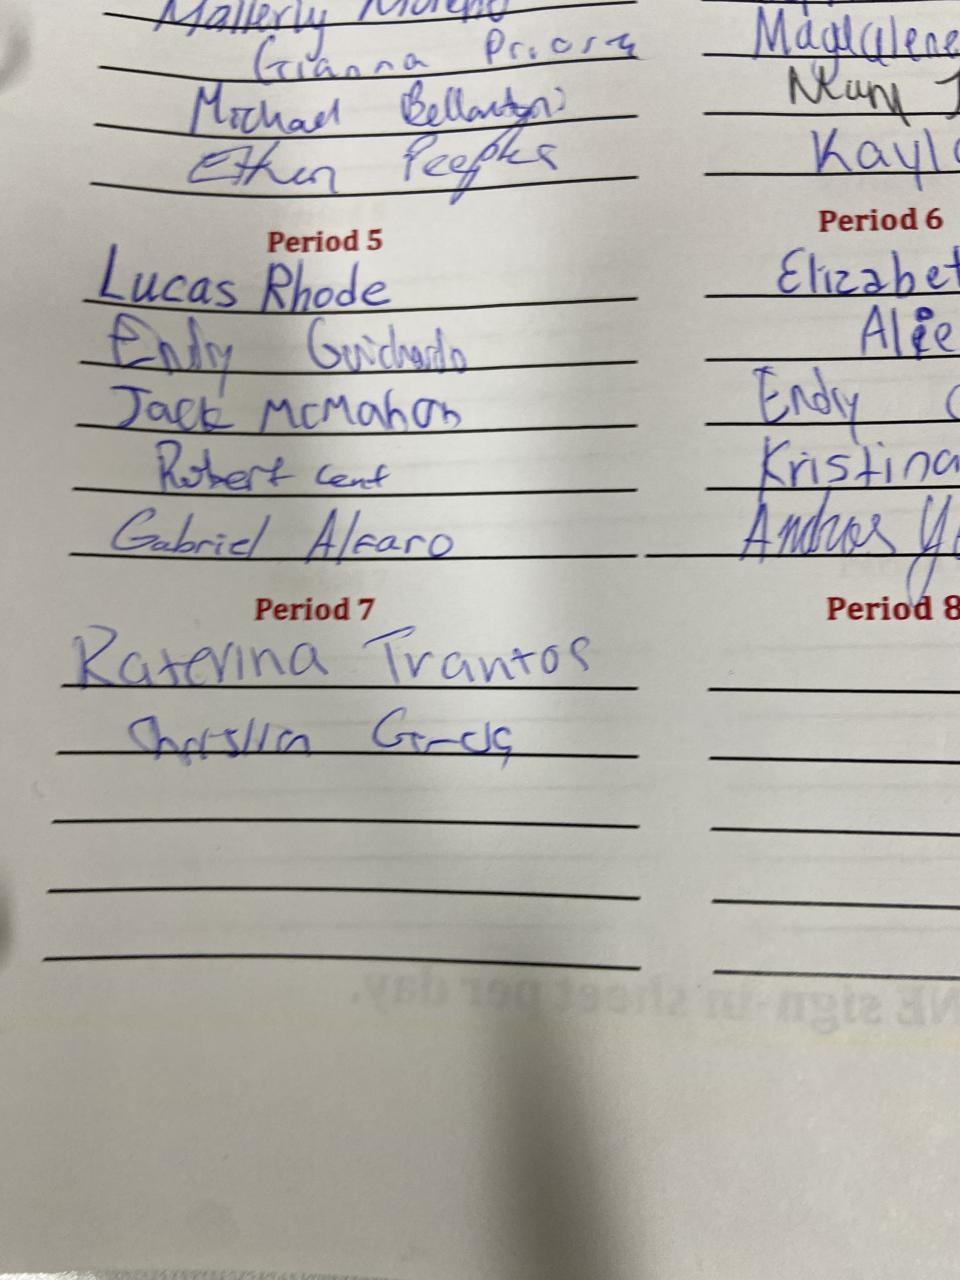 Mallerly
Gianna
Michael Bellantoni
Ethan Peeples
Magdalene
Kayl
Period 5
Lucas Rhode
Endy Guichardo
Jack McMahon
Robert Cent
Gabriel Alfaro
Period 6
Elizabet
Endy
Kristina
Period 7
Katerina Trantos
Period 8
NE sign-in sheet per day.